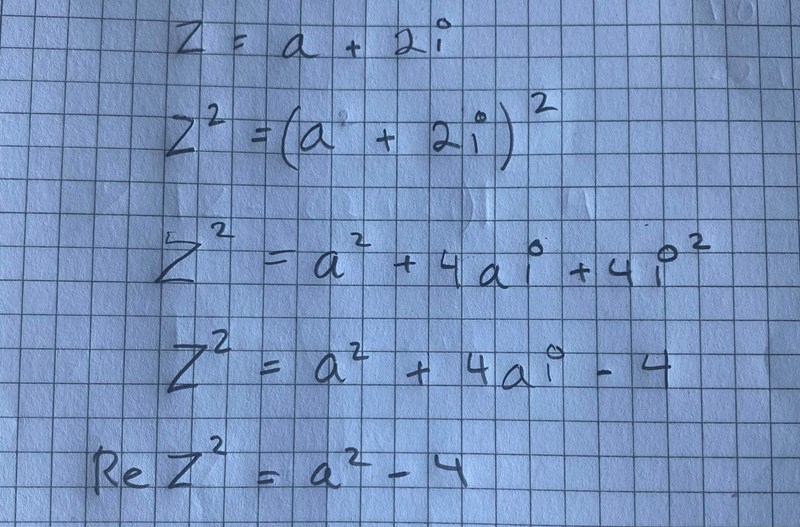 Z = a + 2i
Z² = (a + 2i)²
Z² = a² + 4ai + 4i²
Z² = a² + 4ai - 4
Re Z² = a² - 4